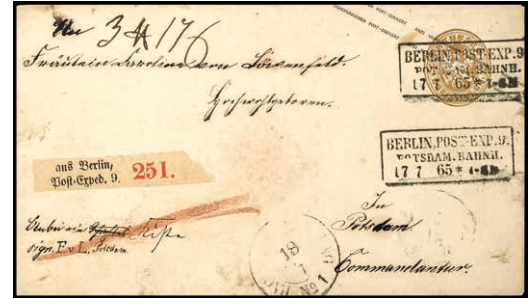 An 3 # 17 6
Fräulein Caroline von Löwenfeld.
Hochwohlgeboren.
BERLIN,POST-EXP.9.
POTSDAM.BAHNH.
17 7 65 *
BERLIN,POST-EXP.9.
POTSDAM.BAHNH.
17 7 65 *
aus Berlin,
Post-Exped. 9.
251.
Anbei ein Kiste
sign. F v L.
In
Potsdam
Commandantur.
18
7
No 1